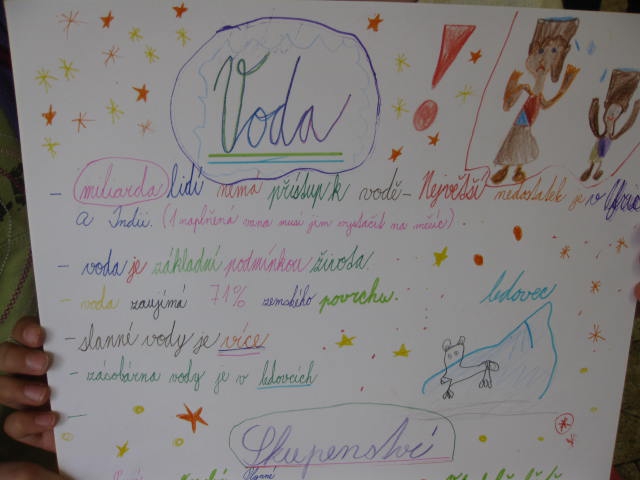 Voda
- miliarda lidí nemá přístup k vodě - Největší nedostatek je v Africe
a Indii. (1 naplněna vana musí jim vystačit na měsíc)
- voda je základní podmínkou života.
- voda zaujímá 71% zemského povrchu.
ledovec
- slanné vody je více
- zásobárna vody je v ledovcích
-
Skupenství